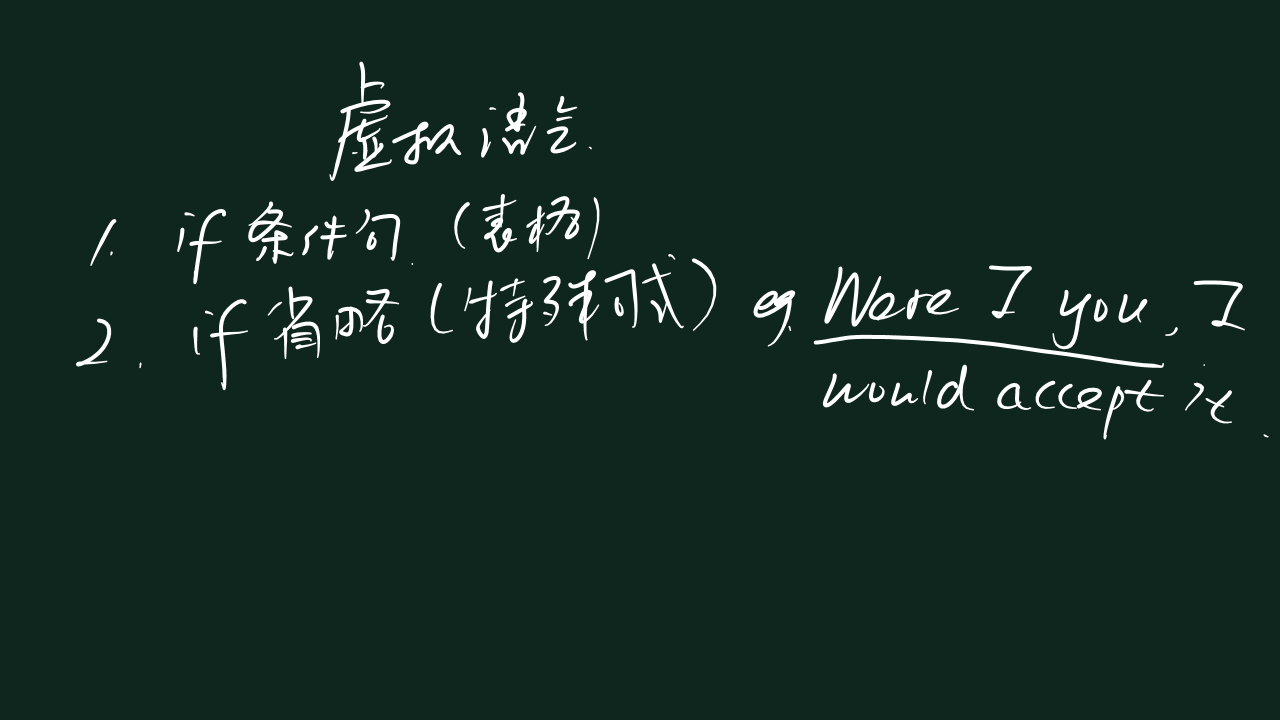 虚拟语气.
1. if 条件句.(表格)
2. if 省略(特殊句式) eg. Were I you, I
would accept it.